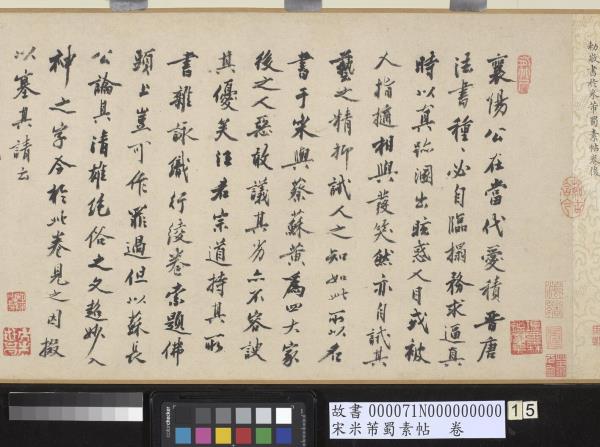 勅敬書於米芾蜀素帖卷後
襄陽公在當代愛積晉唐
法書種種必自臨搨務求逼真
時以真跡溷出眩惑人目或被
人指擿相與發笑然亦自試其
藝之精抑試人之知如此所以名
書于宋與蔡蘇黃為四大家
後之人惡敢議其劣亦不容諛
其優矣汪君宗道持其所
書雜詠織行綾卷索題佛
頭上豈可作罪過但以蘇長
公論其清雄絕俗之文超妙入
神之字今於此卷見之因掇
以塞其請云
故書 000071N000000000 15
宋米芾蜀素帖 卷